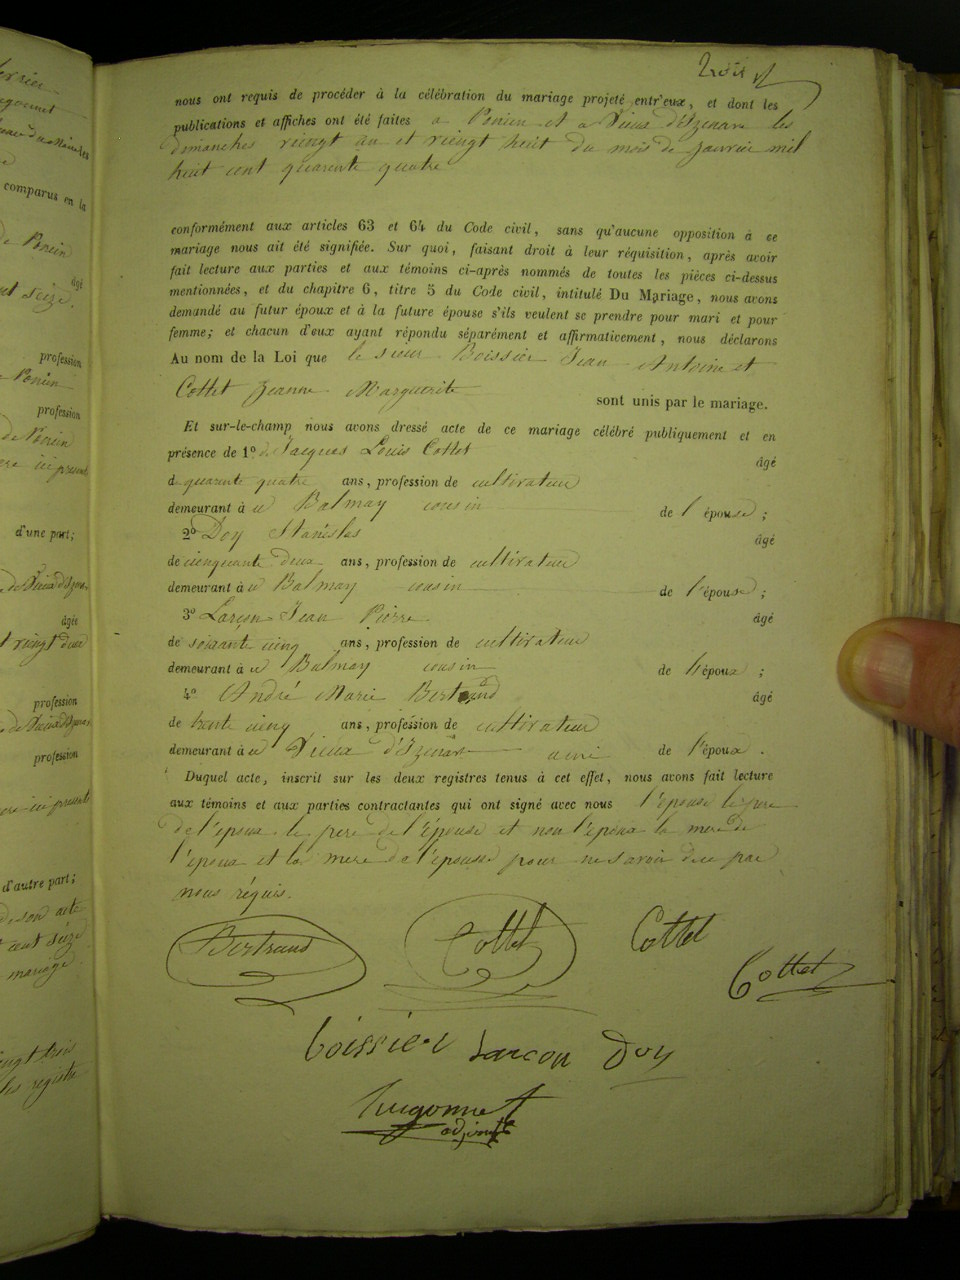 Trois
nous ont requis de procéder à la célébration du mariage projeté entr'eux, et dont les
publications et affiches ont été faites a Poncin et a Vieux d'Izenave les
dimanches vingt un et vingt huit du mois de janvier mil
huit cent quarante quatre
conformément aux articles 63 et 64 du Code civil, sans qu'aucune opposition à ce
mariage nous ait été signifiée. Sur quoi, faisant droit à leur réquisition, après avoir
fait lecture aux parties et aux témoins ci-après nommés de toutes les pièces ci-dessus
mentionnées, et du chapitre 6, titre 5 du Code civil, intitulé Du Mariage, nous avons
demandé au futur époux et à la future épouse s'ils veulent se prendre pour mari et pour
femme; et chacun d'eux ayant répondu séparément et affirmativement, nous déclarons
Au nom de la Loi que le sieur Boissier Jean Antoine et
Cottet Jeanne Marguerite
sont unis par le mariage.
Et sur-le-champ nous avons dressé acte de ce mariage célébré publiquement et en
présence de 1º Jacques Louis Cottet âgé
d quarante quatre ans, profession de cultivateur
demeurant à Balmay cousin de l'épouse;
2º Doy Stanislas âgé
de cinquante deux ans, profession de cultivateur
demeurant à Balmay cousin de l'épouse;
3º Larçon Jean Pierre âgé
de soixante cinq ans, profession de cultivateur
demeurant à Balmay cousin de l'époux;
4º André Marie Bertrand âgé
de trente cinq ans, profession de cultivateur
demeurant à Vieux d'Izenave ami de l'époux.
Duquel acte, inscrit sur les deux registres tenus à cet effet, nous avons fait lecture
aux témoins et aux parties contractantes qui ont signé avec nous l'épouse le pere
de l'époux le pere de l'épouse et non l'époux la mere de
l'époux et la mere de l'épouse pour ne savoir de ce par
nous réquis.
Bertrand Cottet Cottet
Cottet
boissier Larçon Doy
hugonnet
adjoint